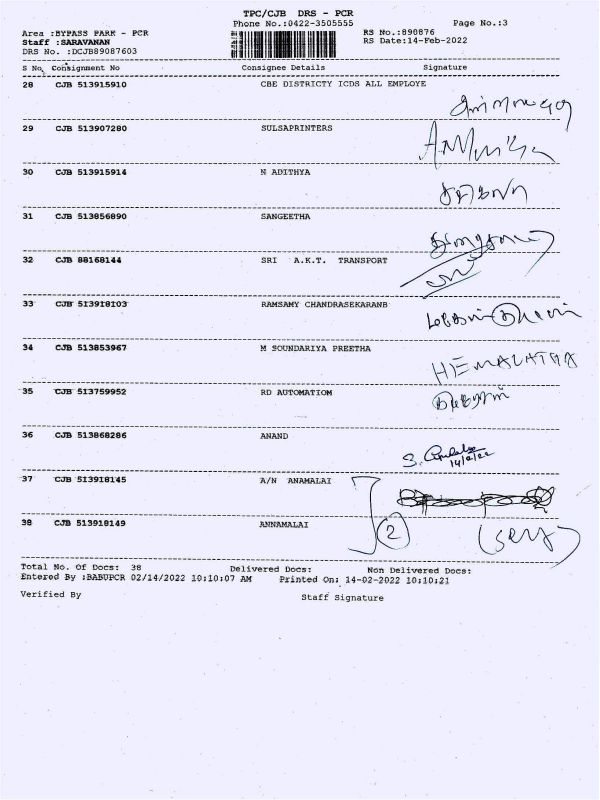 TPC/CJB DRS - PCR
Phone No.:0422-3505555 Page No.:3
Area :BYPASS PARK - PCR RS No.:890876
Staff :SARAVANAN RS Date:14-Feb-2022
DRS No. :DCJB89087603
S No Consignment No Consignee Details Signature
28 CJB 513915910 CBE DISTRICTY ICDS ALL EMPLOYE
29 CJB 513907280 SULSAPRINTERS
30 CJB 513915914 N ADITHYA
31 CJB 513856890 SANGEETHA
32 CJB 88168144 SRI A.K.T. TRANSPORT
33 CJB 513918103 RAMSAMY CHANDRASEKARANB
34 CJB 513853967 M SOUNDARIYA PREETHA
HEMALATHA
35 CJB 513759952 RD AUTOMATIOM
36 CJB 513868286 ANAND
14/2/22
37 CJB 513918145 A/N ANAMALAI
38 CJB 513918149 ANNAMALAI 2
Total No. Of Docs: 38 Delivered Docs: Non Delivered Docs:
Entered By :BABUPCR 02/14/2022 10:10:07 AM Printed On: 14-02-2022 10:10:21
Verified By Staff Signature